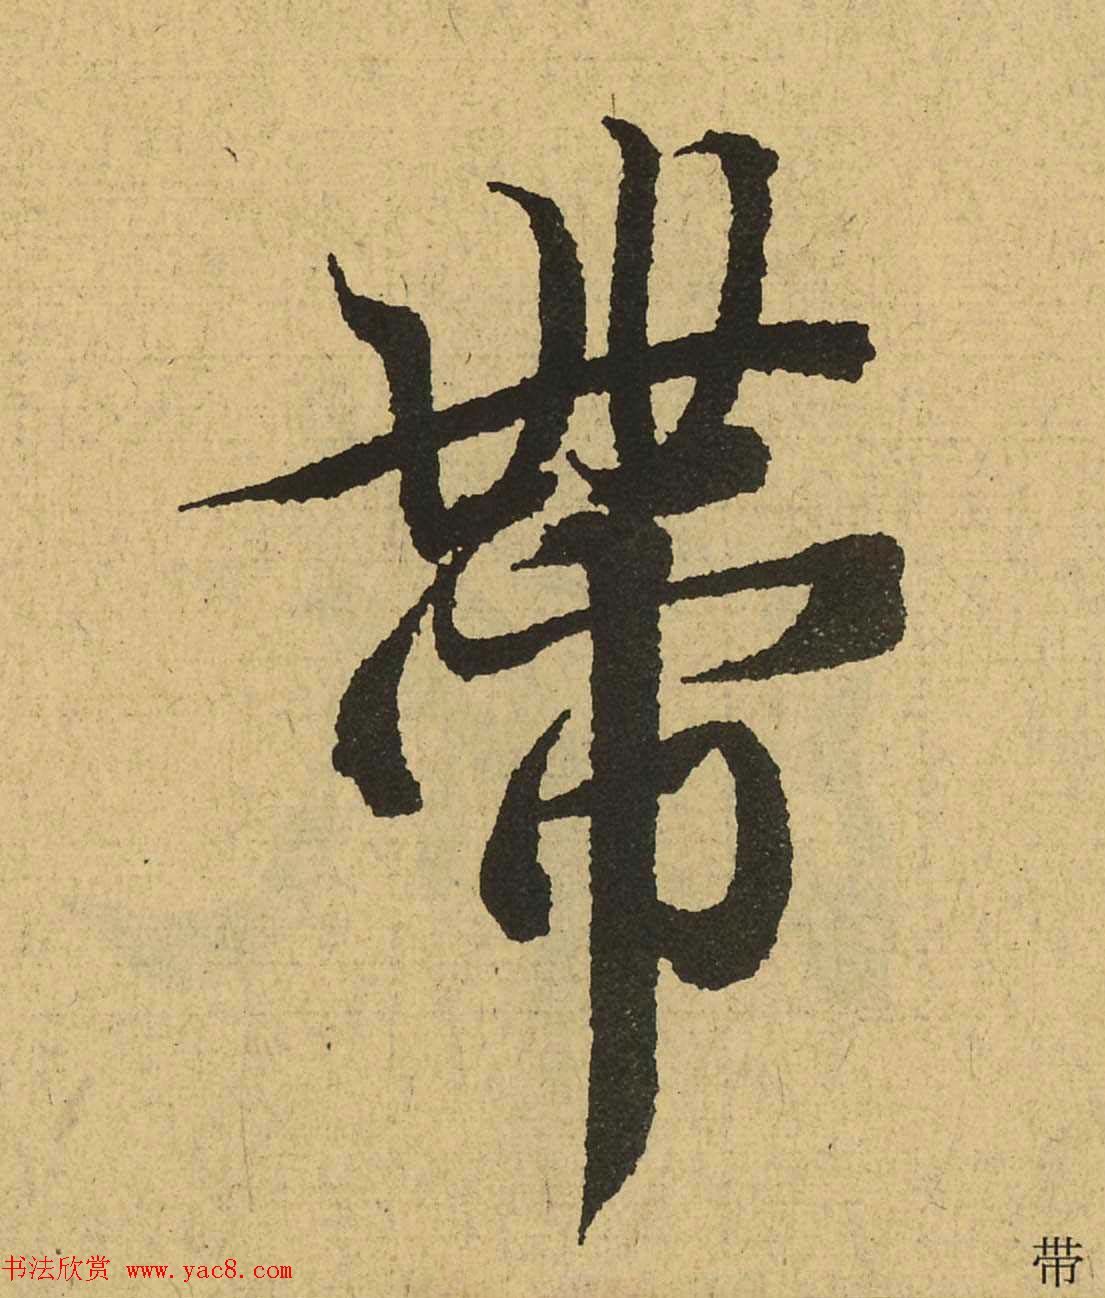 帶
带
书法欣赏 www.yac8.com